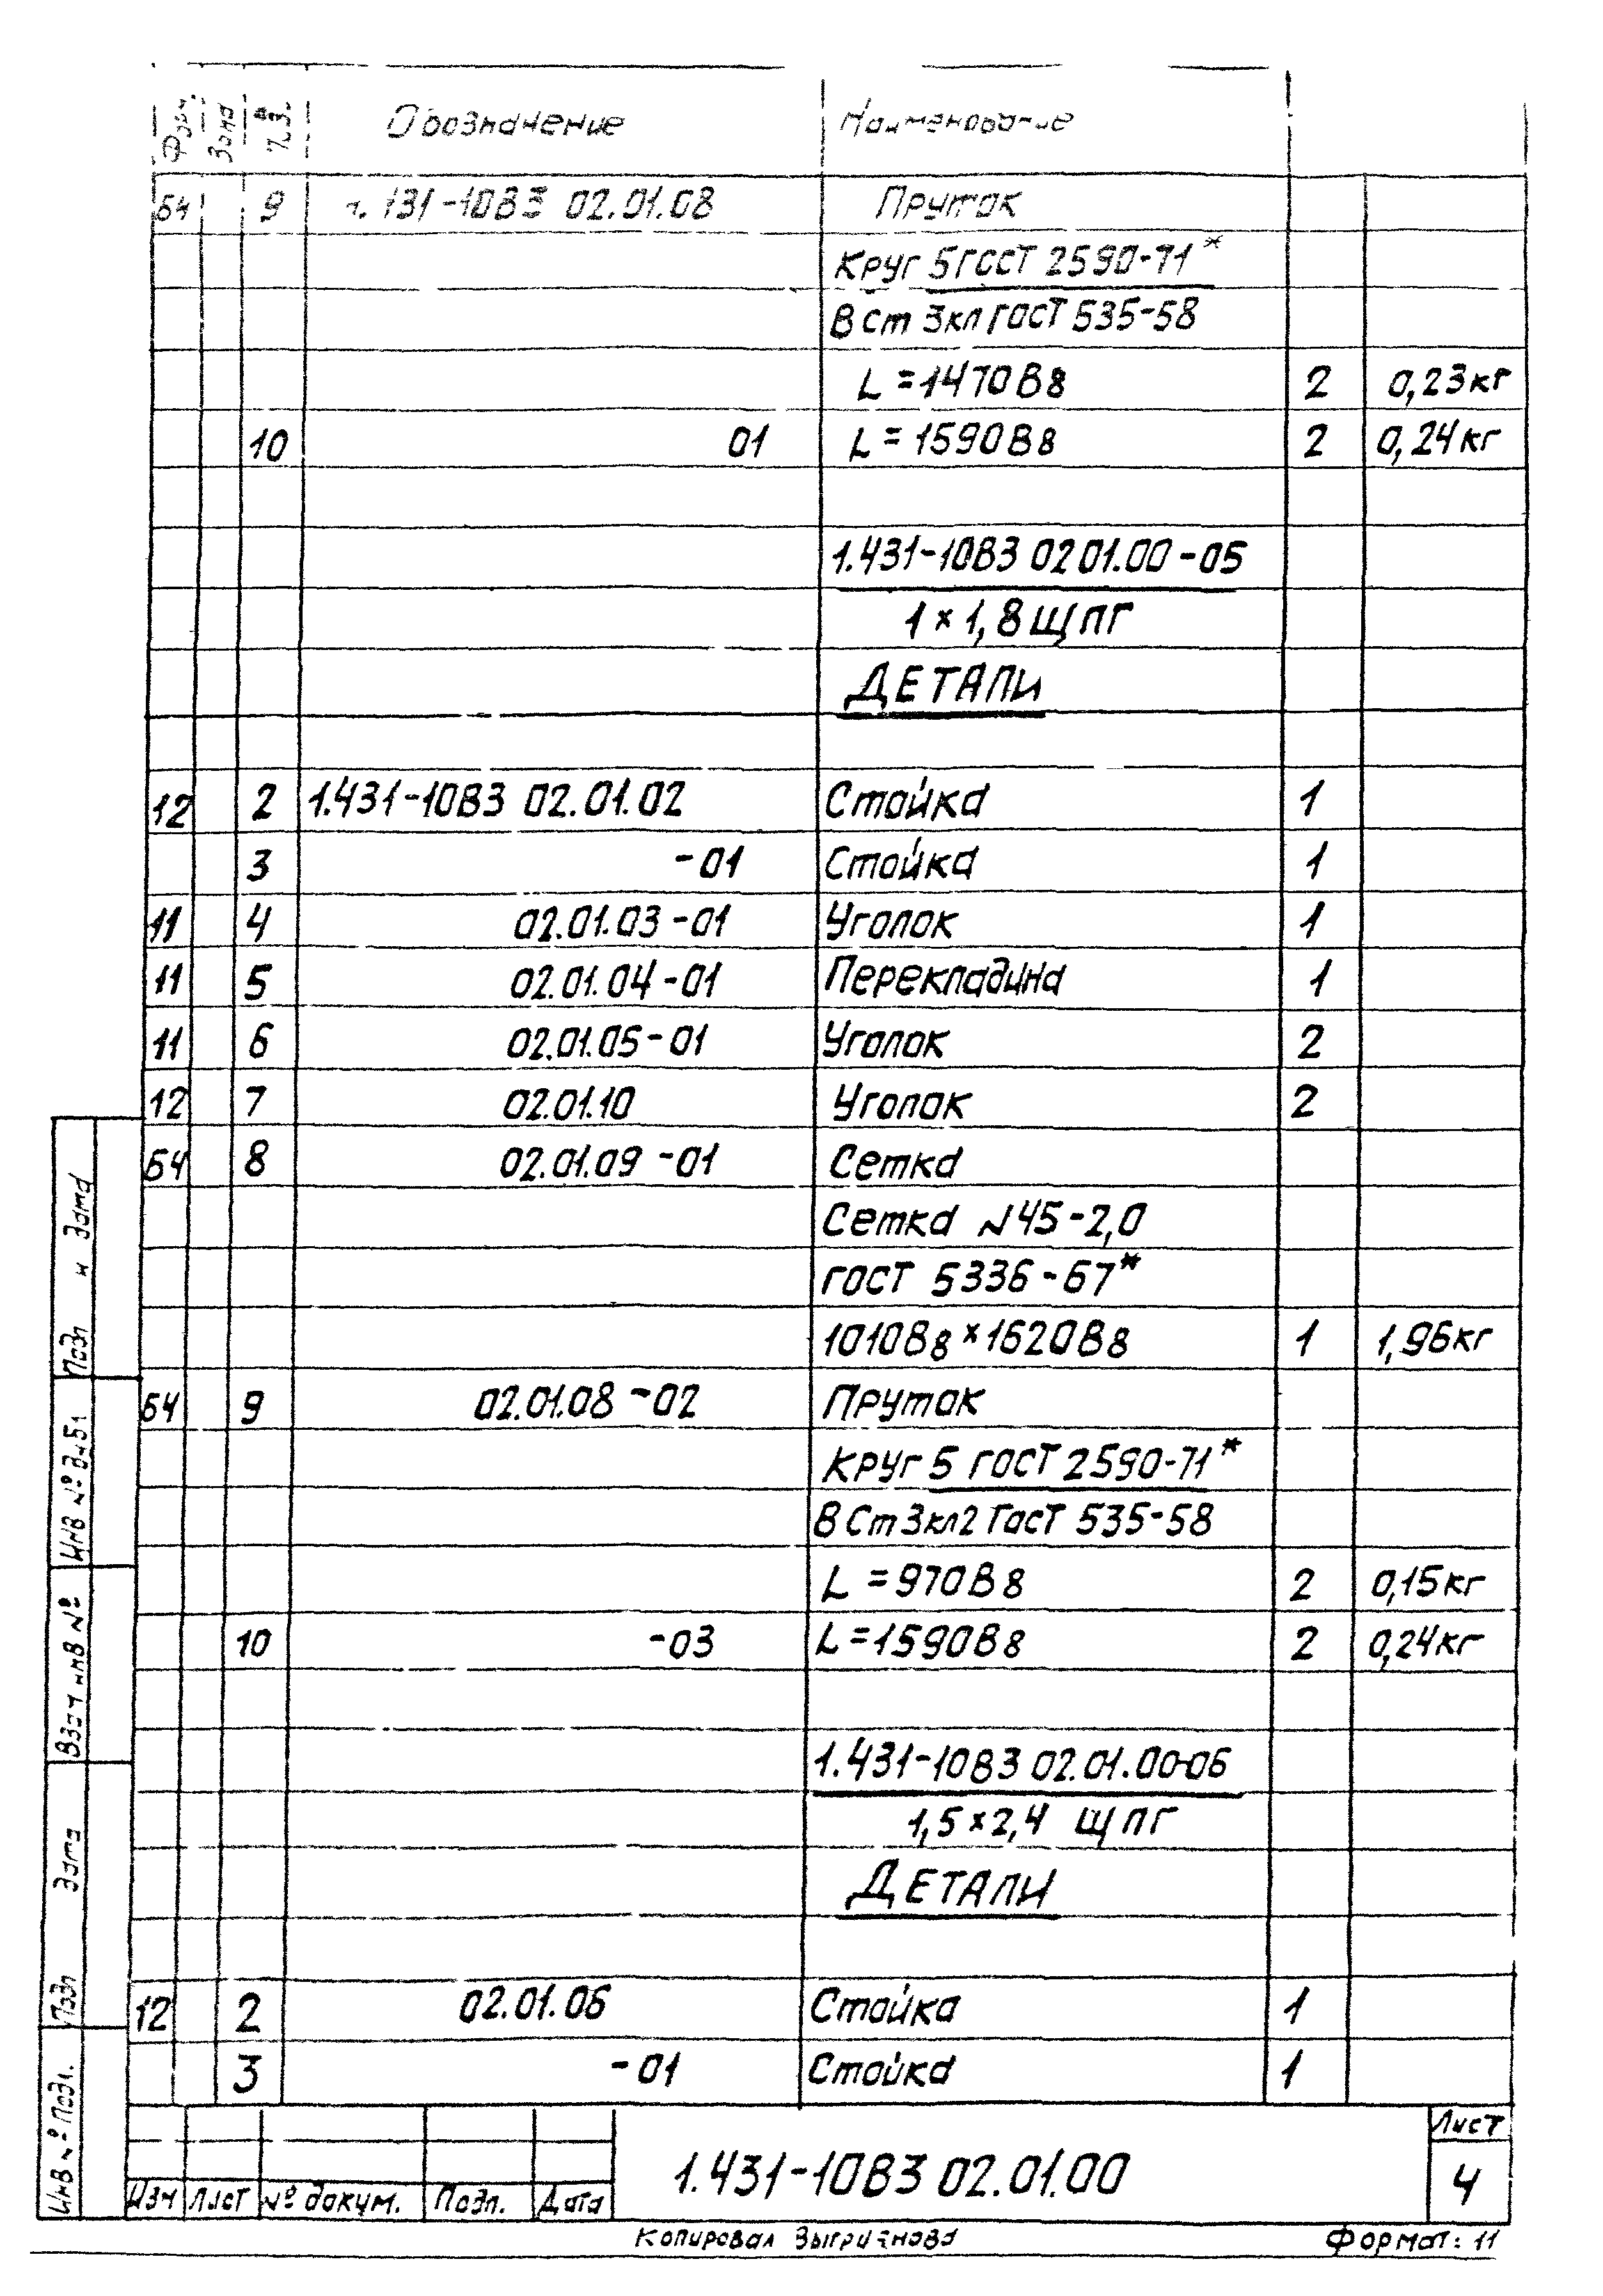 Форм. Зона Поз. Обозначение Наименование
БЧ 9 1.431-10В3 02.01.08 Пруток
Круг 5 ГОСТ 2590-71*
В Ст 3кп ГОСТ 535-58
L = 1470 В8 2 0,23 кг
10 01 L = 1590 В8 2 0,24 кг
1.431-10В3 02 01.00 - 05
1 × 1,8 ЩПГ
ДЕТАЛИ
12 2 1.431-10В3 02.01.02 Стойка 1
3 -01 Стойка 1
11 4 02.01.03 -01 Уголок 1
11 5 02.01.04 -01 Перекладина 1
11 6 02.01.05 - 01 Уголок 2
12 7 02.01.10 Уголок 2
БЧ 8 02.01.09 -01 Сетка
Сетка N 45 - 2,0
ГОСТ 5336 - 67*
1010В8 × 1620В8 1 1,96 кг
БЧ 9 02.01.08 -02 Пруток
Круг 5 ГОСТ 2590-71*
В Ст 3кп2 ГОСТ 535-58
L = 970 В8 2 0,15 кг
10 -03 L = 1590 В8 2 0,24 кг
1.431-10В3 02.01.00-06
1,5 × 2,4 ЩПГ
ДЕТАЛИ
12 2 02.01.06 Стойка 1
3 -01 Стойка 1
Подп и дата
Инв № дубл
Взам инв №
Подп дата
Инв № подл.
Изм Лист № докум. Подп. Дата
1.431-10В3 02.01.00
Лист
4
Копировал Формат: 11